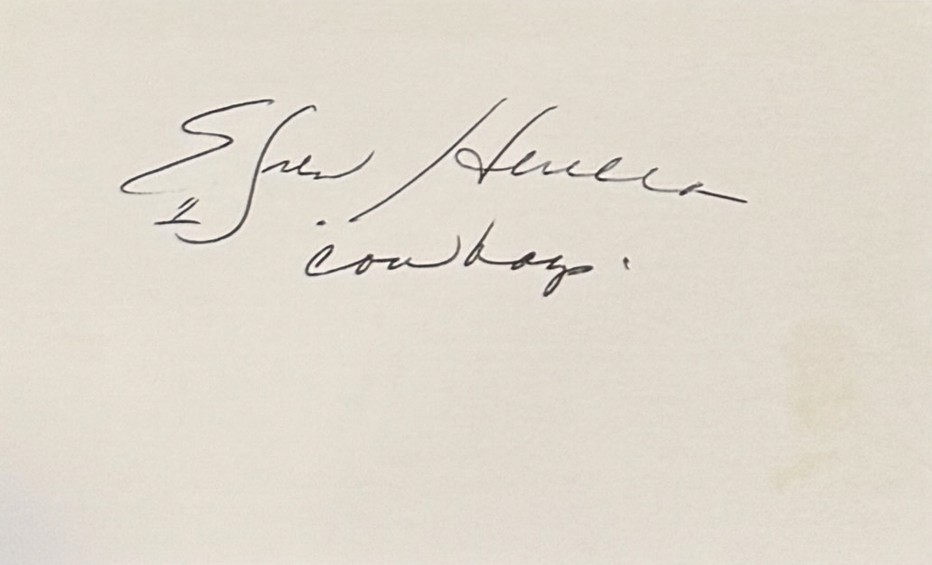 Efren Herrera
1
cowboys.